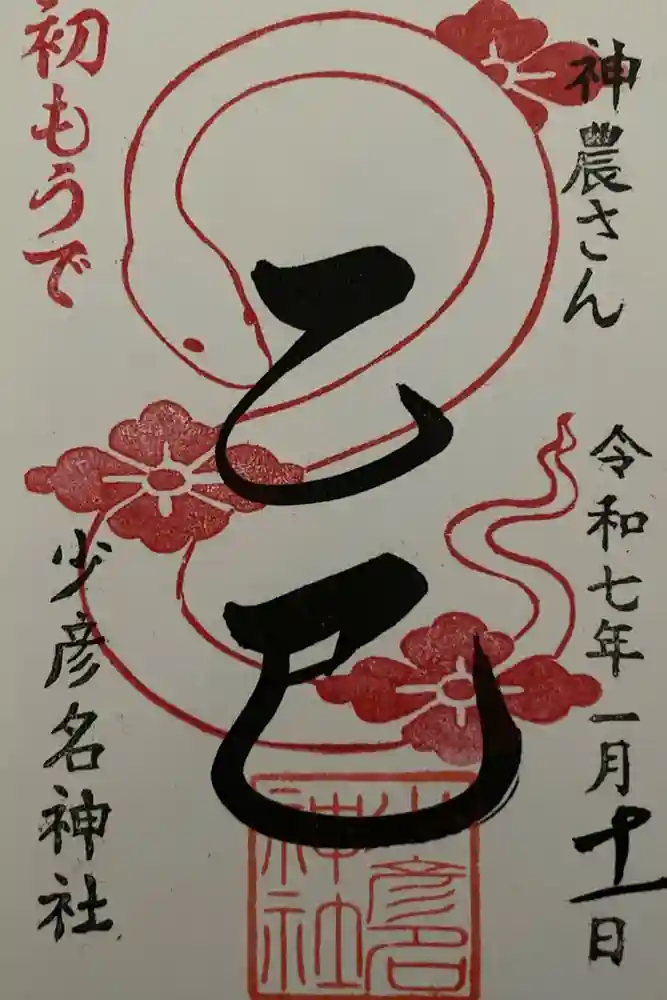 神農さん
令和七年一月十一日
乙巳
初もうで
少彦名神社
少彦名
神社